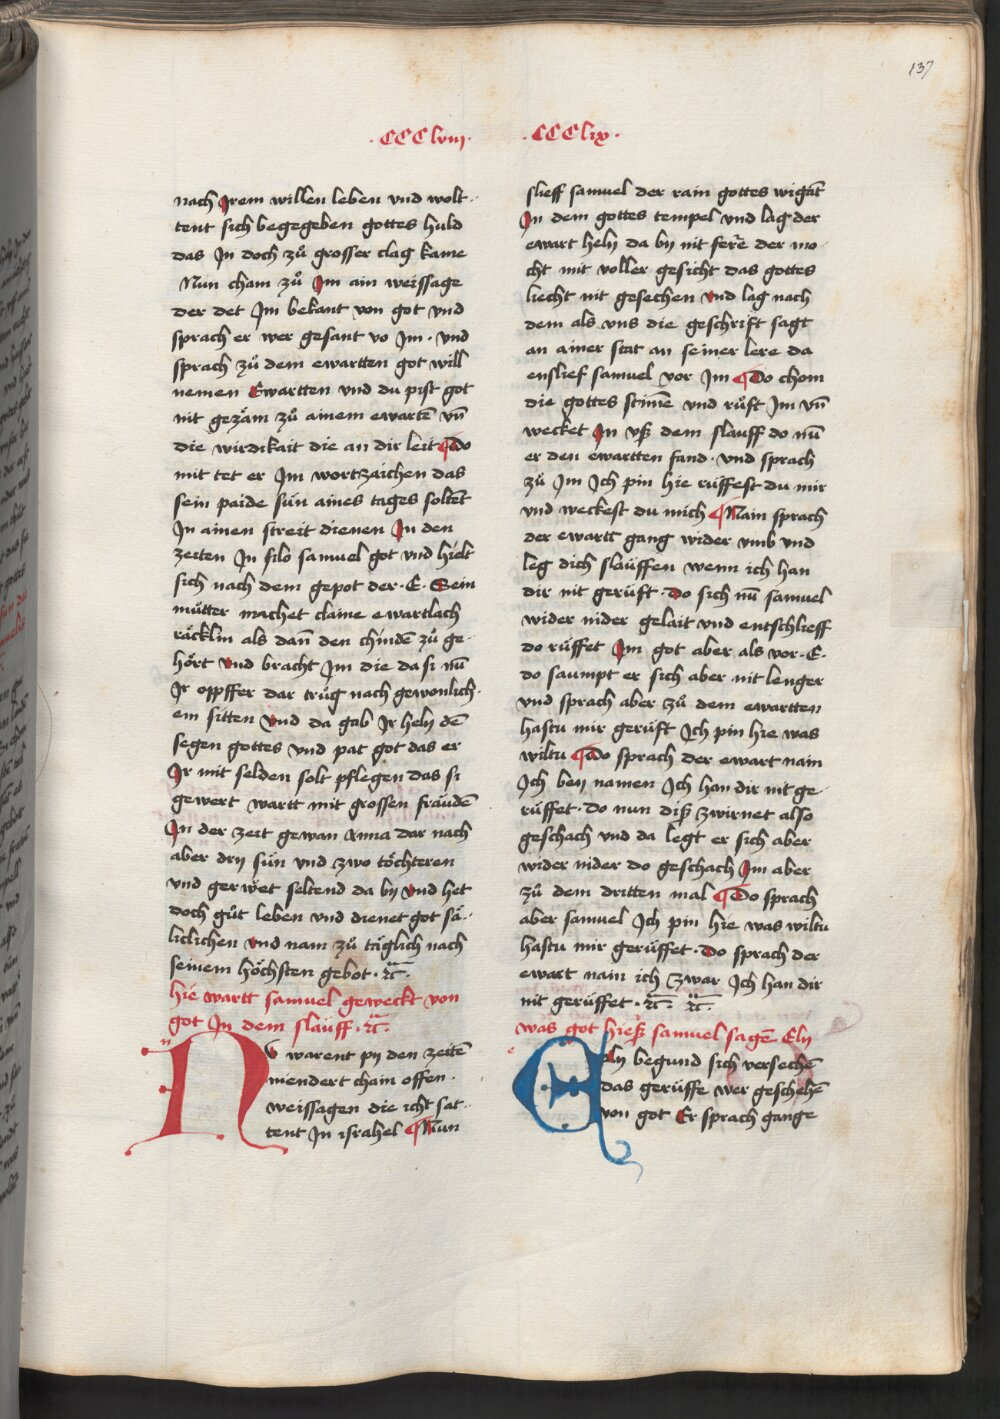 137
·CCClviij·
nach Irem willen leben vnd wolt-
tent sich begegeben gottes huld
das In doch zů grosser clag kame
Nun cham zů Im ain weissage
der det Im bekant von got vnd
sprach er wer gesant vo Im · vnd
sprach zů dem ewartten got will
nemen Ewartten vnd du pist got
nit gezåm zů ainem ewartē vn̄
die wirdikait die an dir leit ¶ Do
mit tet er Im wortzaichen das
sein paide sün aines tages soltēt
In ainen streit dienen In den
zeiten In silo samuel got vnd hielt
sich nach dem gepot der · E · Sein
můtter machet claine ewartlach
räcklin als dan̄ den chindē zů ge-
hört vnd bracht Im die da si nū
Ir oppffer dar trůg nach gewonlich-
em sitten vnd da gab Ir helij dē
segen gottes vnd pat got das er
Ir mit selden solt pflegen das si
gewert wartt mit grossen fräudē
In der zeit gewan Anna dar nach
aber drij sün vnd zwo töchteren
vnd gerwet seltend da bij vnd het
doch gůt leben vnd dienet got sä-
liclichen vnd nam zů täglich nach
seinem höchsten gebot · ꝛc̄ ·
hie wartt samuel geweckt von
got In dem slauff · ꝛc̄ ·
NV warent pij den zeitē
niendert chain offen ·
weissagen die icht sat-
tent In israhel ¶ Nun
·CCClix·
slieff samuel der rain gottes wigāt
In dem gottes tempel vnd lag der
ewart helij da bij nit fer̄e der mo-
cht mit voller gesicht das gottes
liecht nit gesechen vnd lag nach
dem als vns die geschrift sagt
an ainer stat an seiner lere da
enslief samuel vor Im ¶ Do chom
die gottes stim̄e vnd růft Im vn̄
wecket In vß dem slauff do nū
er den ewartten fand · vnd sprach
zů Im Ich pin hie rüffest du mir
vnd weckest du mich ¶ Nain sprach
der ewartt gang wider vmb vnd
leg dich slauffen wenn ich han
dir nit gerüft · Do sich nū samuel
wider nider gelait vnd entschlieff
do rüffet Im got aber als vor · E ·
do saumpt er sich aber nit lenger
vnd sprach aber zů dem ewartten
hastu mir gerüft Ich pin hie was
wiltu ¶ Do sprach der ewart nain
Ich beij namen Ich han dir nit ge-
rüffet · do nun diß zwirnet also
geschach vnd da legt er sich aber
wider nider do geschach Im aber
zů dem dritten mal ¶ Do sprach
aber samuel Ich pin hie was wiltu
hastu mir gerüffet · Do sprach der
ewart nain ich zwar Ich han dir
nit gerüffet · ꝛc̄ · ꝛc̄ ·
was got hieß samuel sagē Elij
Elij begund sich versechē
das gerüffe wer geschehē
von got Er sprach gange